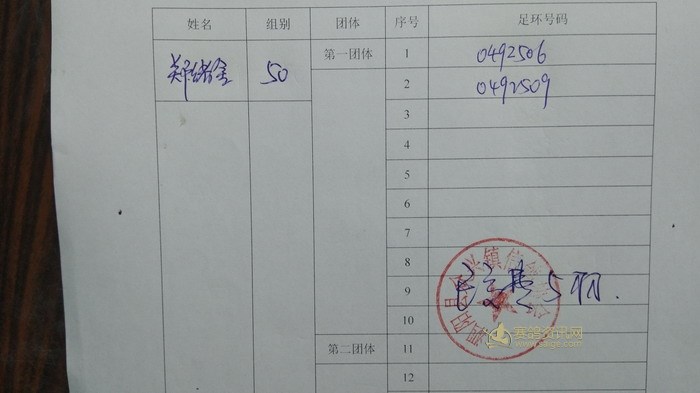 姓名 组别 团体 序号 足环号码
郑绪金 50 第一团体 1 0492506
2 0492509
3
4
5
6
7
8
9 已交费5羽.
10
第二团体 11
12
赛鸽资讯网